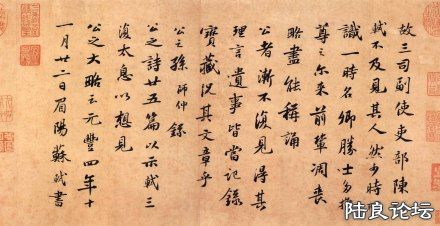 故三司副使吏部陳公
軾不及見其人然少時所
識一時名卿勝士多推
尊之尔來前輩凋喪
略盡能稱誦
公者漸不復見得其
理言遺事皆當記錄
寶藏況其文章乎
公之孫師仲錄
公之詩廿五篇以示軾三
復太息以想見
公之大略云元豐四年十
一月廿二日眉陽蘇軾書
陆良论坛